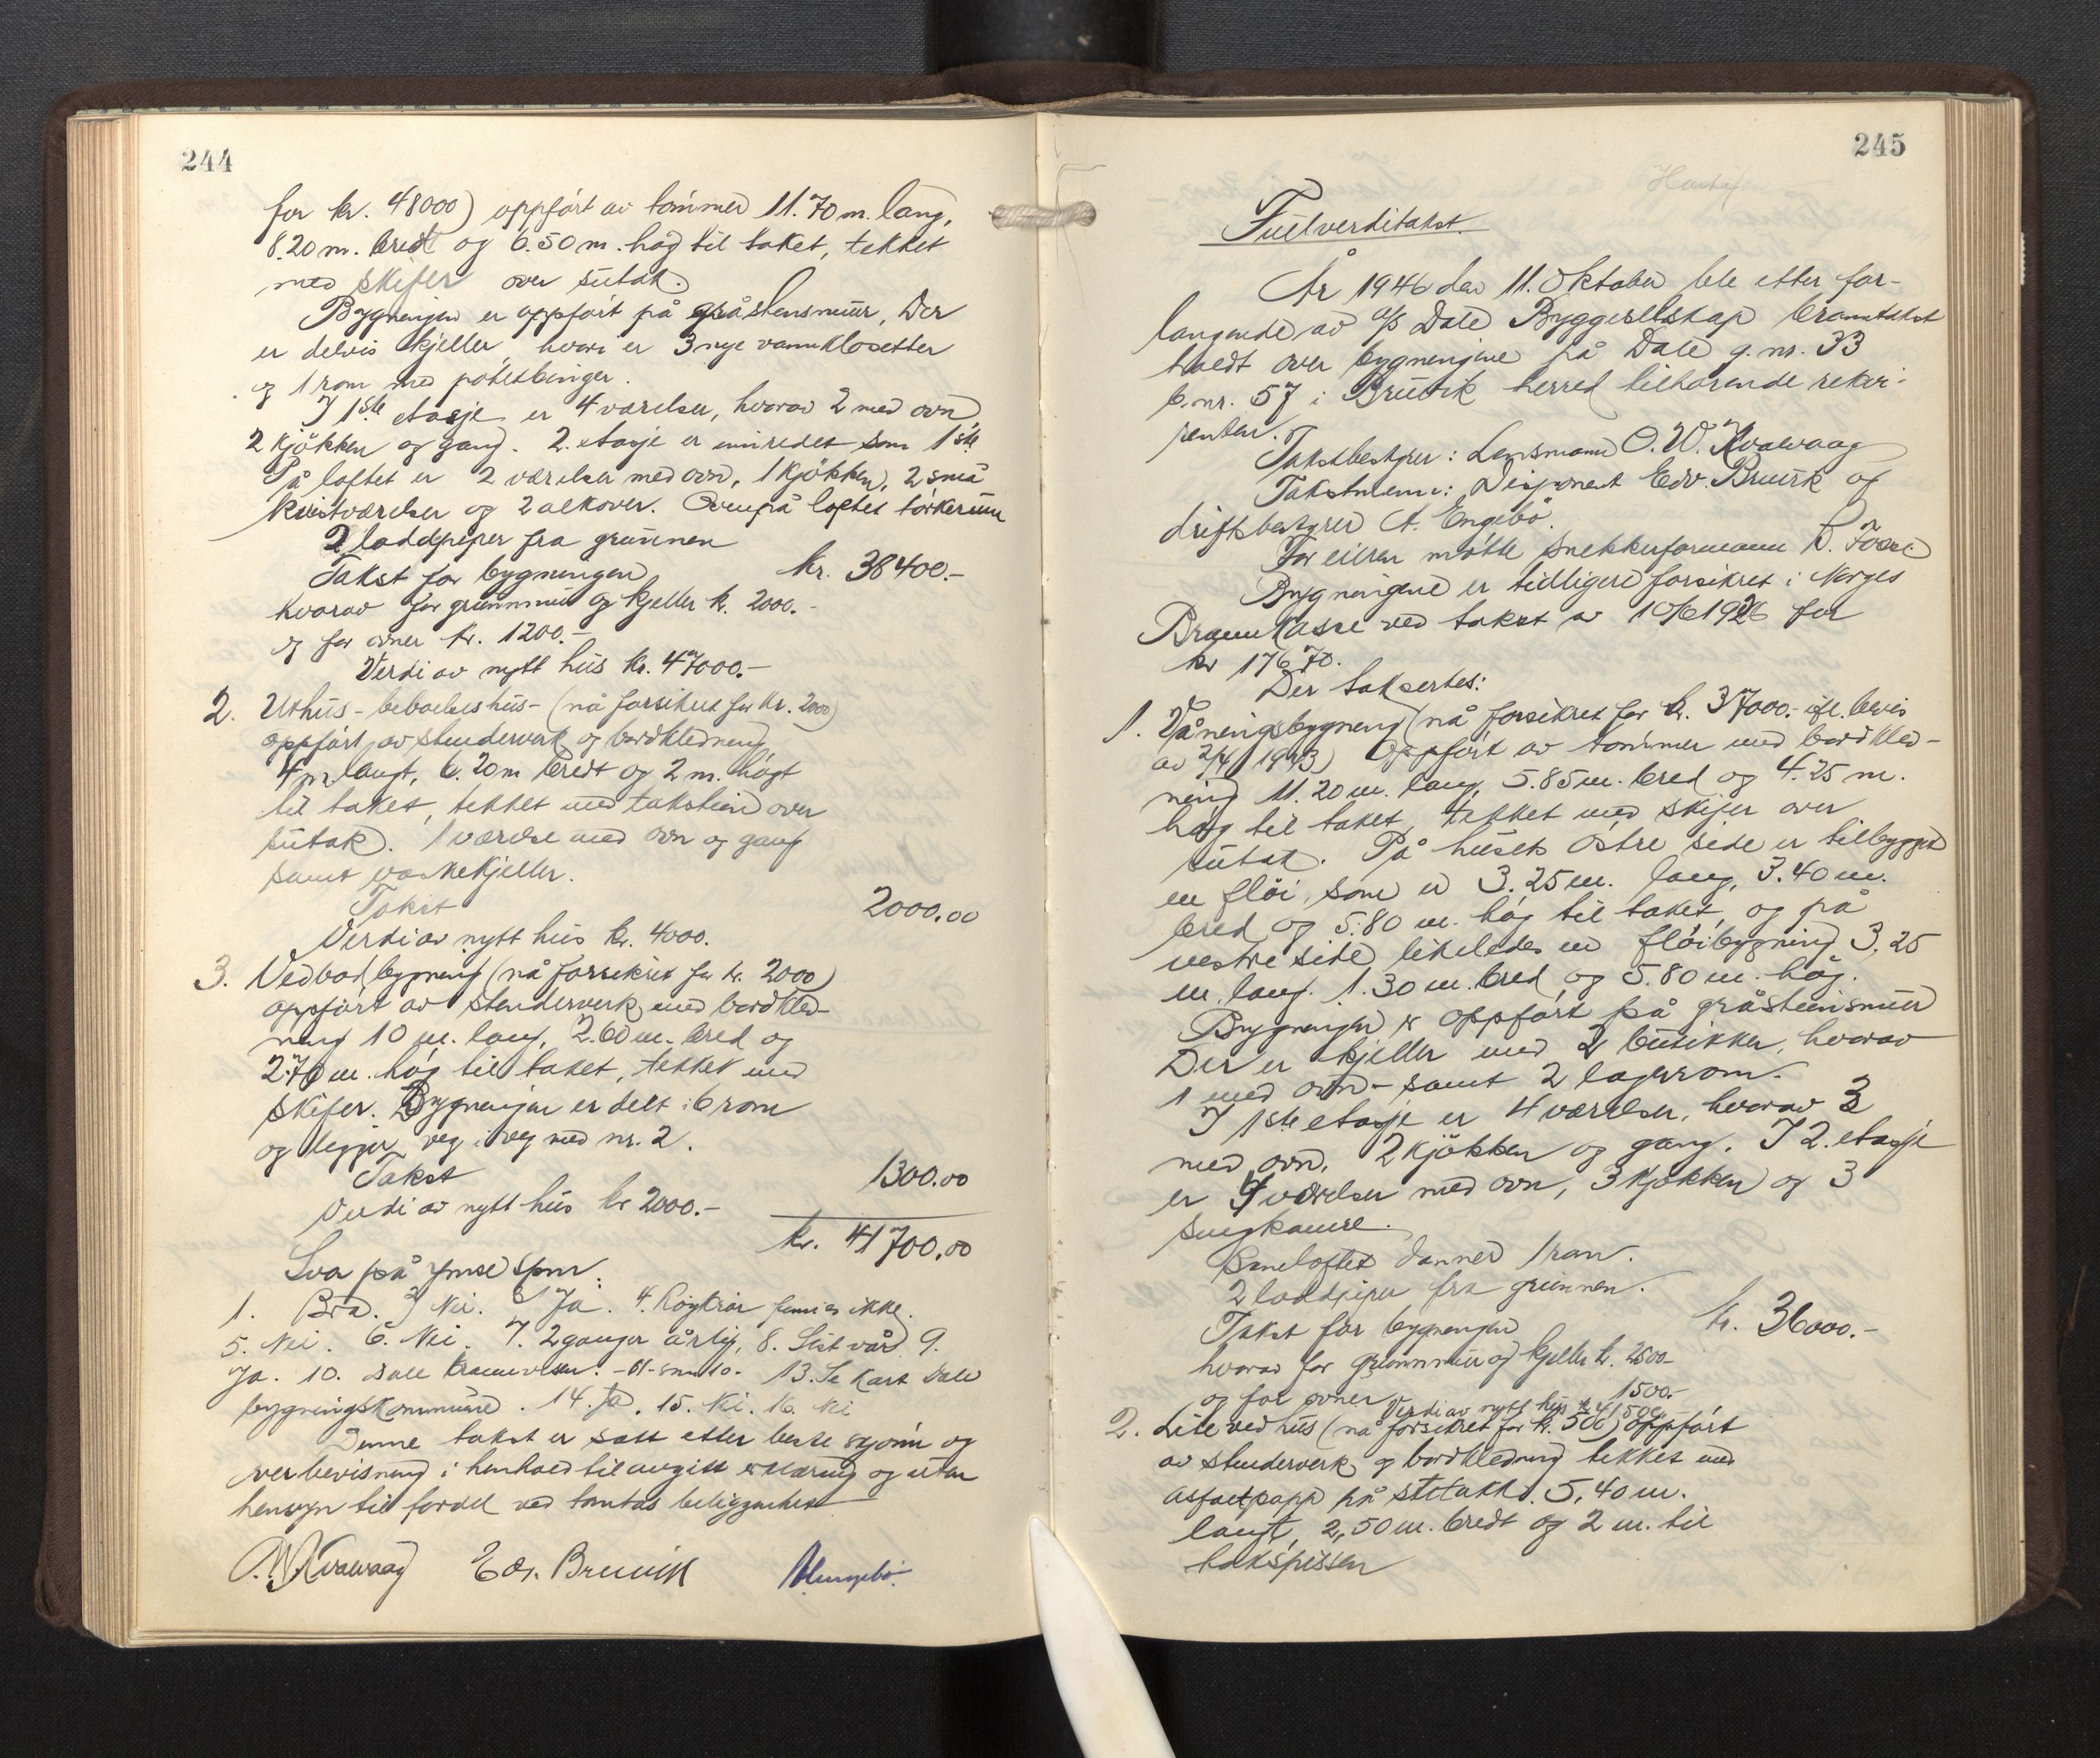 244
for kr. 48000) oppført av tømmer 11.70 m. lang,
8.20 m. bredt og 6.50 m. høg til taket, tekket
med skifer over sutak.
Bygningen er oppført på gråstensmur. Der
er delvis kjeller, hvori er 3 nye vannklosetter
og 1 rom med potetbinger.
I 1ste etasje er 4 værelser, hvorav 2 med ovn
2 kjøkken og gang. 2. etasje er innredet som 1ste
På loftet er 2 værelser med ovn, 1 kjøkken, 2 små
kvistværelser og 2 alkover. Ovenpå loftet tørkerum
2 loddpiper fra grunnen
Takst for bygningen kr. 38400.-
hvorav for grunnmur og kjeller kr. 2000.-
og for ovner kr. 1200.-
Verdi av nytt hus kr. 47000.-
2. Uthus - beboelseshus - (nå forsikret for kr. 2000)
oppført av stenderverk og bordkledning
4 m langt, 6.20 m bredt og 2 m. høgt
til taket, tekket med takstein over
sutak. 1 værelse med ovn og gang
samt vaskekjeller.
Takst 2000.00
Verdi av nytt hus kr. 4000.
3. Vedbodbygning (nå forsikret for kr. 2000)
oppført av stenderverk med bordkled-
ning 10 m. lang, 2.60 m. bred og
2.70 m. høg til taket, tekket med
skifer. Bygningen er delt i 6 rom
og ligger veg i veg med nr. 2.
Takst 1300.00
Verdi av nytt hus kr 2000.-
kr. 41700.00
Svar på ymse spm:
1. Bra. 2 Nei. 3 Ja. 4. Røykrør finnes ikke.
5. Nei. 6. Nei. 7. 2 ganger årlig, 8. Sist vår 9.
Ja. 10. Dale brannvesen. - 11 - som 10. 13. Se kart Dale
bygningskommune. 14. Ja. 15. Nei. 16. Nei
Denne takst er satt etter beste skjønn og
overbevisning i henhold til avgitt erklæring og uten
hensyn til fordel ved tomtas beliggenhet
O.W. Kvalvaag Edv. Bruvik A Engebø
245
Fullverditakst.
År 1946 den 11. Oktober ble etter for-
langende av a/s Dale Byggeselskap branntakst
holdt over bygningene på Dale g.nr. 33
b.nr. 57 i Bruvik herred tilhørende rekvi-
renten.
Takstbestyrer: Lensmann O. W. Kvalvaag
Takstmenn: Disponent Edv. Bruvik og
driftsbestyrer A. Engebø.
For eieren møtte snekkerformann K. Fosse
Bygningene er tidligere forsikret i Norges
Brannkasse ved takst av 10/6 1926 for
kr 17670.
Der takseres:
1. Våningsbygning (nå forsikret for kr. 37000.- ifl. bevis
av 2/4 1943) Oppført av tømmer med bordkled-
ning 11.20 m. lang, 5.85 m. bred og 4.25 m.
høg til taket, tekket med skifer over
sutak. På husets østre side er tilbygget
en fløi, som er 3.25 m. lang, 3.40 m.
bred og 5.80 m. høg til taket, og på
vestre side likeledes en fløibygning 3.25
m. lang. 1.30 m. bred og 5.80 m. høg.
Bygningen er oppført på gråsteinsmur
Der er kjeller med 2 butikker, hvorav
1 med ovn - samt 2 lagerrom.
I 1ste etasje er 4 værelser, hvorav 3
med ovn, 2 kjøkken og gang. I 2. etasje
er 4 værelser med ovn, 3 kjøkken og 3
sengkamre.
Baneloftet danner 1 rom.
2 loddpiper fra grunnen.
Takst for bygningen kr. 36000.-
hvorav for grunnmur og kjeller kr. 2500.-
og for ovner 1500.-
Verdi av nytt hus kr 41500.-
2. Lite vedhus (nå forsikret for kr. 500) oppført
av stenderverk og bordkledning tekket med
asfaltpapp på sutak. 5,40 m.
langt, 2,50 m. bredt og 2 m. til
takspissen